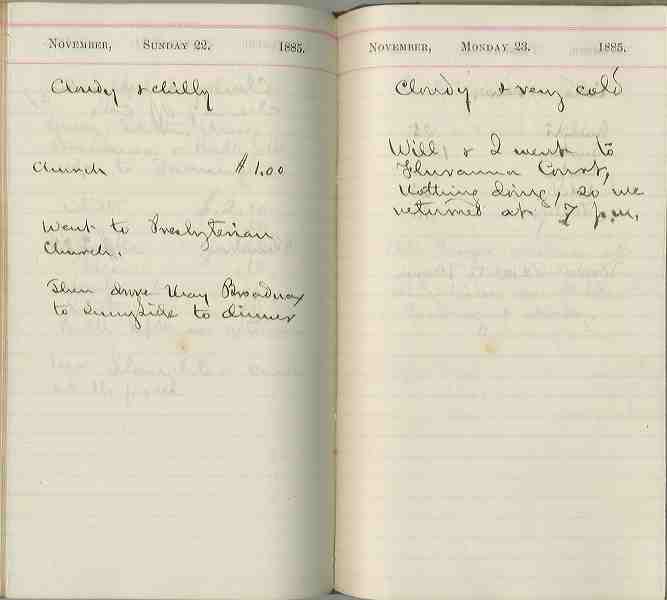 NOVEMBER, SUNDAY 22. 1885.
Cloudy & chilly
Church $1.00
Went to Presbyterian
Church.
Then drove May Broadway
to Sunnyside to dinner
NOVEMBER, MONDAY 23. 1885.
Cloudy & very cold
Will, & I went to
Fluvanna Court,
Nothing doing, so we
returned at 7 p.m.